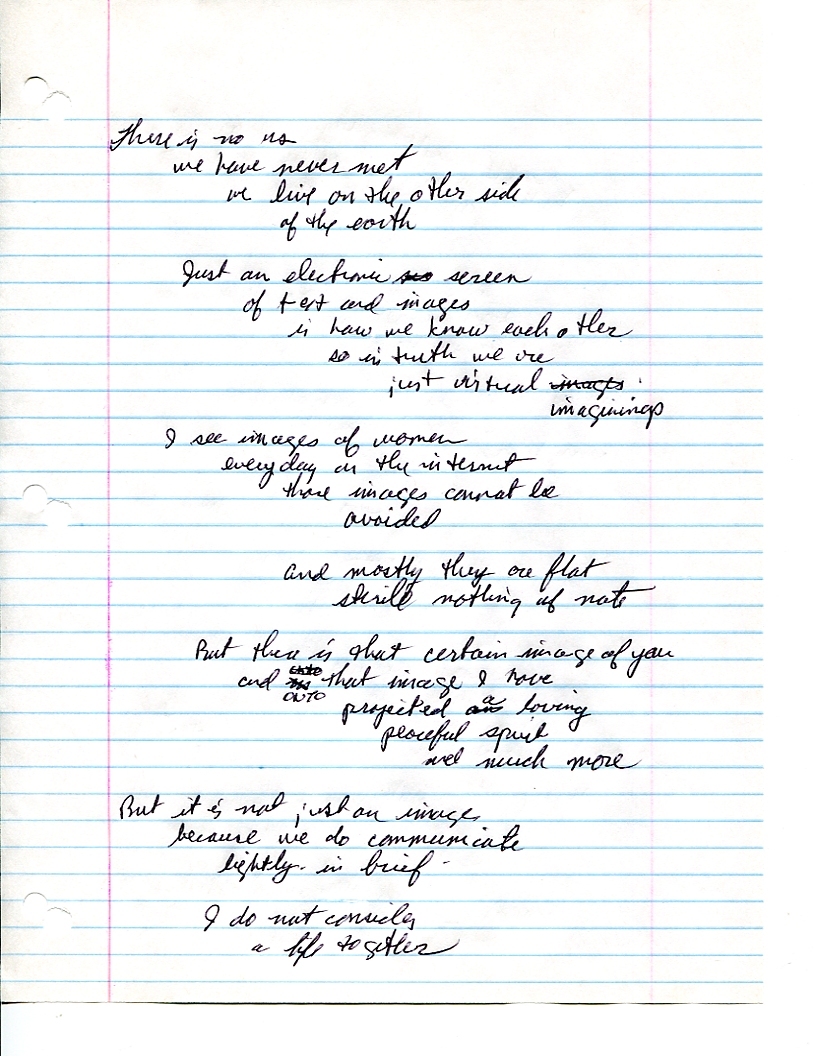 There is no us
we have never met
we live on the other side
of the earth
Just an electronic screen
of text and images
is how we know each other
so in truth we are
just virtual images
imaginings
I see images of women
everyday on the internet
those images cannot be
avoided
and mostly they are flat
sterile nothing of note
But there is that certain image of you
and onto that image I have
projected a loving
peaceful spirit
and much more
But it is not just an image
because we do communicate
lightly - in brief -
I do not consider
a life together